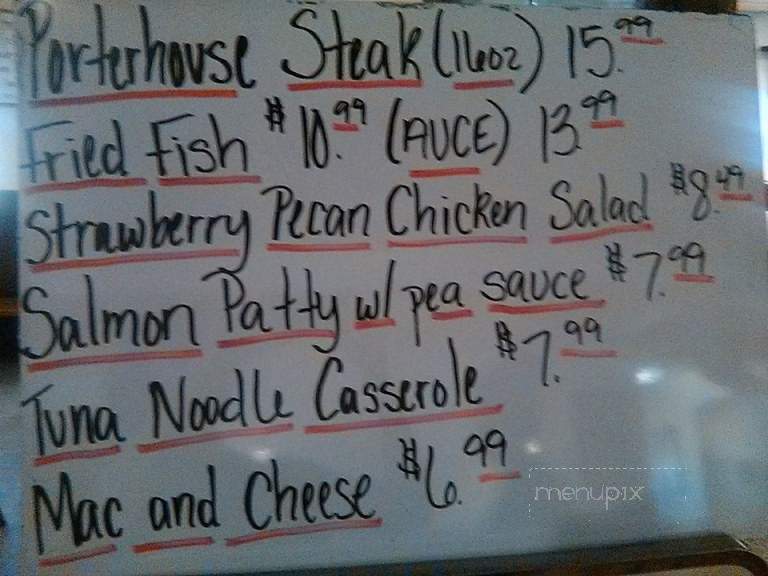 Porterhouse Steak (16oz) 15.99
Fried Fish $10.99 (AUCE) 13.99
Strawberry Pecan Chicken Salad $8.49
Salmon Patty w/ pea sauce $7.99
Tuna Noodle Casserole $7.99
Mac and Cheese $6.99
menupix